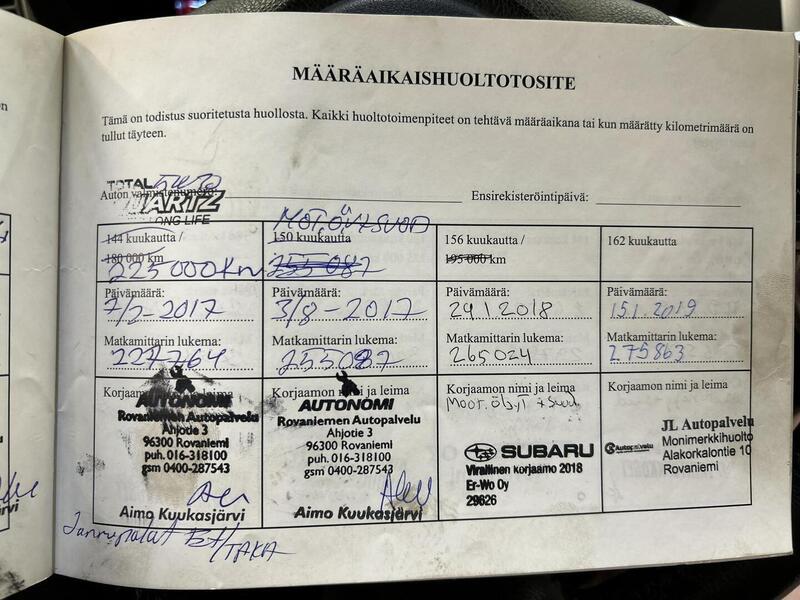 MÄÄRÄAIKAISHUOLTOTOSITE
Tämä on todistus suoritetusta huollosta. Kaikki huoltotoimenpiteet on tehtävä määräaikana tai kun määrätty kilometrimäärä on
tullut täyteen.
TOTAL 5W30
Auton valmistenumero:
Ensirekisteröintipäivä:
QUARTZ
LONG LIFE
MOT.ÖLJY+SUOD
144 kuukautta /
180 000 km
225000Km
150 kuukautta
255 087
156 kuukautta /
195 000 km
162 kuukautta
Päivämäärä:
7/2-2017
Päivämäärä:
3/8-2017
Päivämäärä:
29.1 2018
Päivämäärä:
15.1.2019
Matkamittarin lukema:
227764
Matkamittarin lukema:
255087
Matkamittarin lukema:
265024
Matkamittarin lukema:
275863
Korjaamon nimi ja leima
AUTONOMI
Rovaniemen Autopalvelu
Ahjotie 3
96300 Rovaniemi
puh. 016-318100
gsm 0400-287543
Aimo Kuukasjärvi
Korjaamon nimi ja leima
AUTONOMI
Rovaniemen Autopalvelu
Ahjotie 3
96300 Rovaniemi
puh. 016-318100
gsm 0400-287543
Aimo Kuukasjärvi
Korjaamon nimi ja leima
SUBARU
Virallinen korjaamo 2018
Er-Wo Oy
29626
Korjaamon nimi ja leima
JL Autopalvelu
Autopalvelu
Monimerkkihuolto
Alakorkalontie 10
Rovaniemi
Jarrupalat ET/TAKA